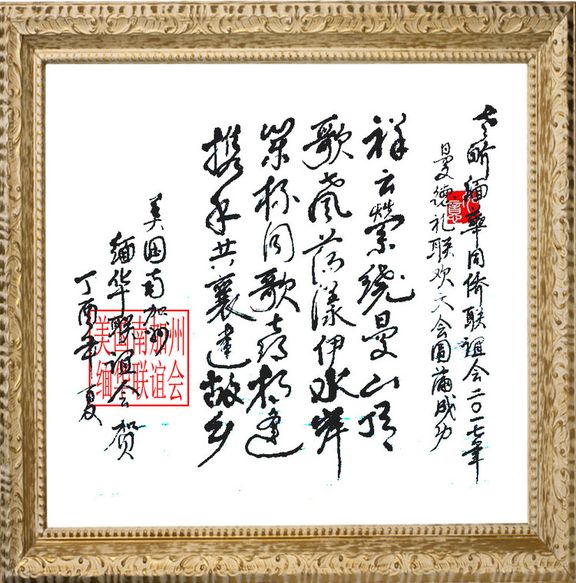 缅华同侨联谊会二〇一七年
曼德礼联欢大会圆满成功
祥云萦绕曼山顶
歌声荡漾伊水岸
举杯同歌喜相逢
携手共襄建故乡
美国南加州
缅华联谊会贺
丁酉年夏
美国南加州
缅华联谊会